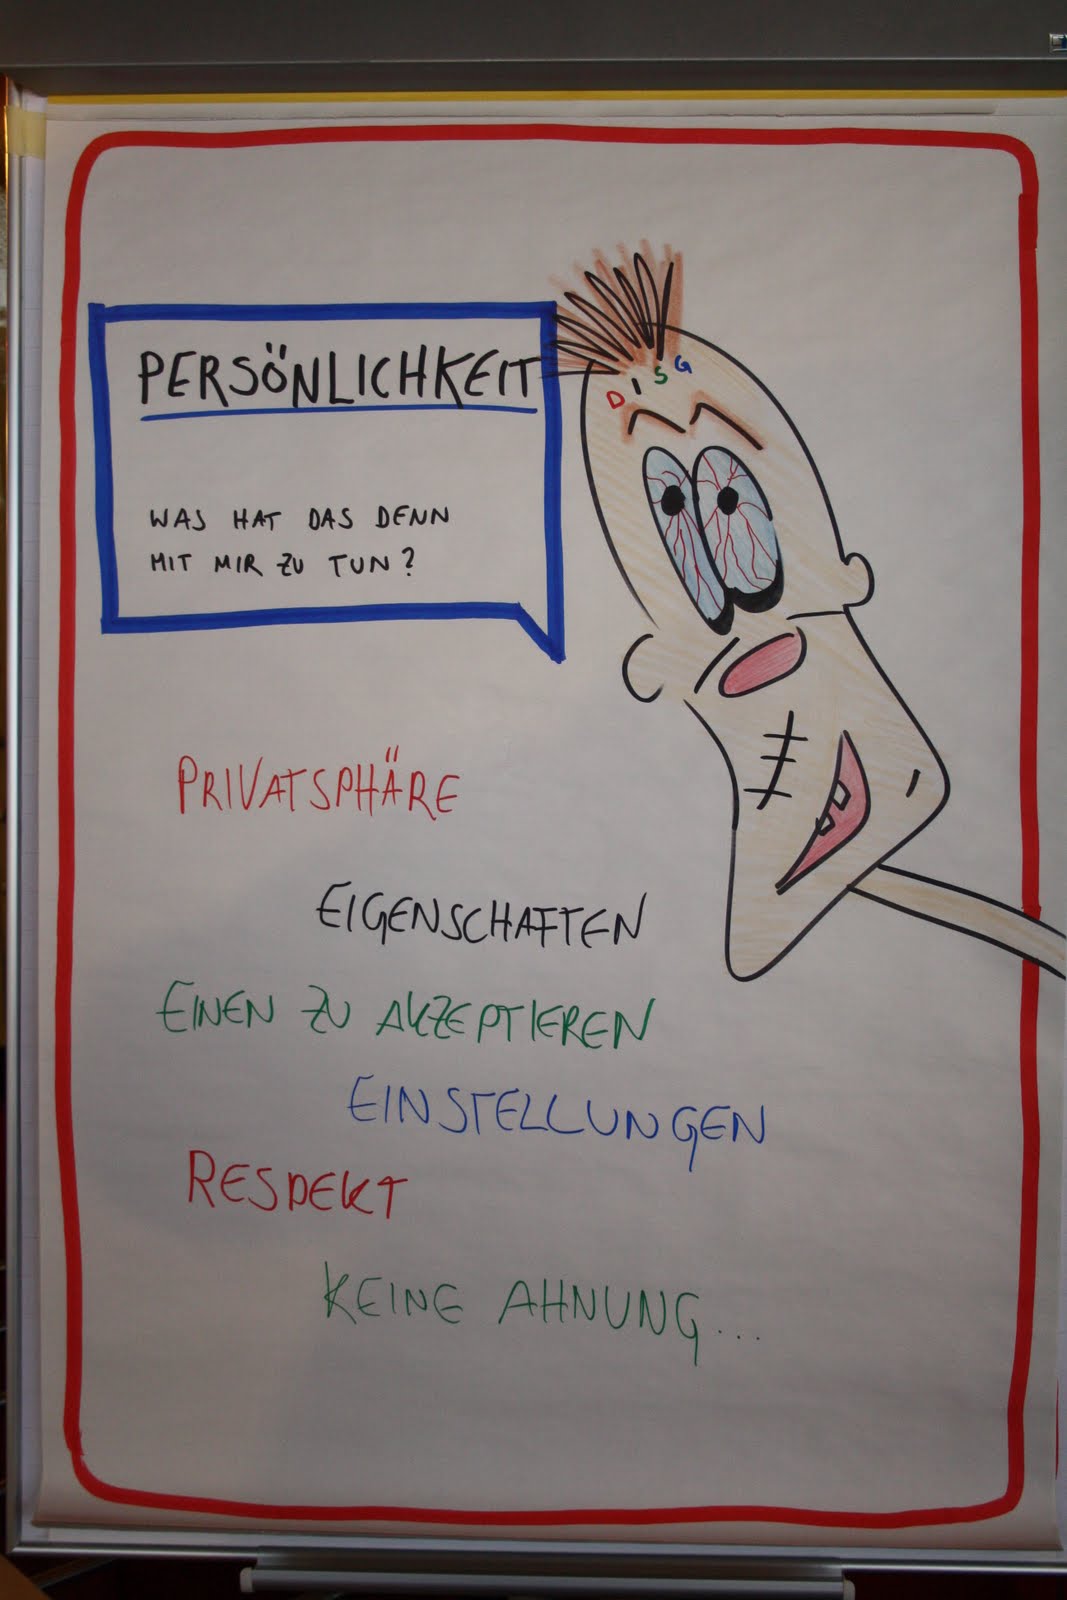 PERSÖNLICHKEIT
WAS HAT DAS DENN
MIT MIR ZU TUN?
D I S G
PRIVATSPHÄRE
EIGENSCHAFTEN
EINEN ZU AKZEPTIEREN
EINSTELLUNGEN
RESPEKT
KEINE AHNUNG...